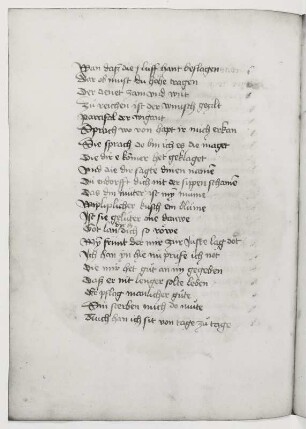 Wan daß die luff hant beslagen
Dar ob must du hohe tragen
Der denet zam vnd wilt
Zu reichen ist der wunsch gezilt
parcifal der wigant
Sprach wo von hapt ir mich erkant
Sie sprach do bin ich es die maget
Die dir e kómer het geklaget
Und die dir sagte dinen namen
Du endorfft dich nit der sippen schamen
Das din muter ist my mume
Wipliplicher kusch ein blume
Ist sie geluter ane dauwe
Got lon dich so
My frunt der mir zur Juste lag dot
Ich han yn hie nu prufe ich not
Die mir het got an im gegeben
Daß er nit lenger solte leben
Er pflag manlicher gute
Sin sterben mich do mute
Auch han ich sit von tage zu tage